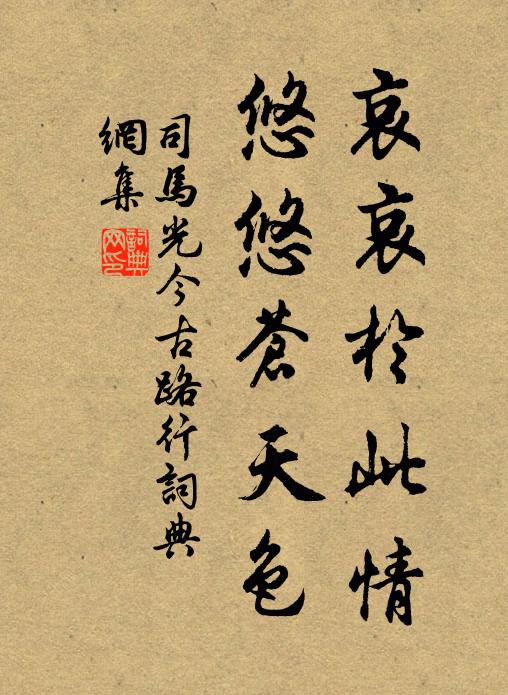 哀哀於此情
悠悠蒼天色
司馬光今古路行詞典
網集
詞典網印